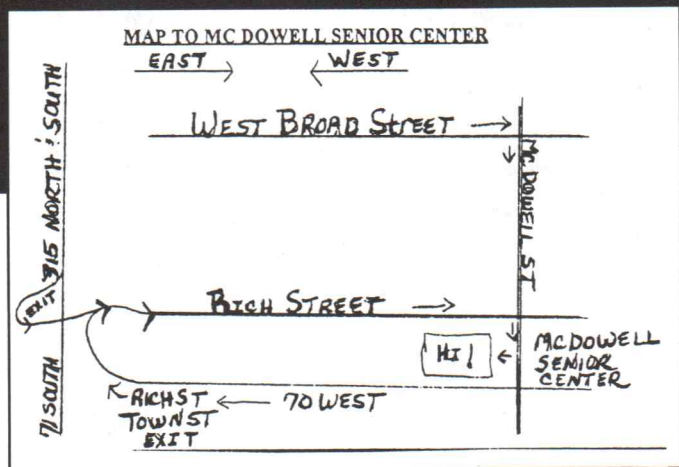 MAP TO MC DOWELL SENIOR CENTER
EAST WEST
WEST BROAD STREET
315 NORTH & SOUTH
MCDOWELL ST
EXIT
RICH STREET
HI!
MCDOWELL
SENIOR
CENTER
71 SOUTH
RICH ST
TOWN ST
EXIT
70 WEST